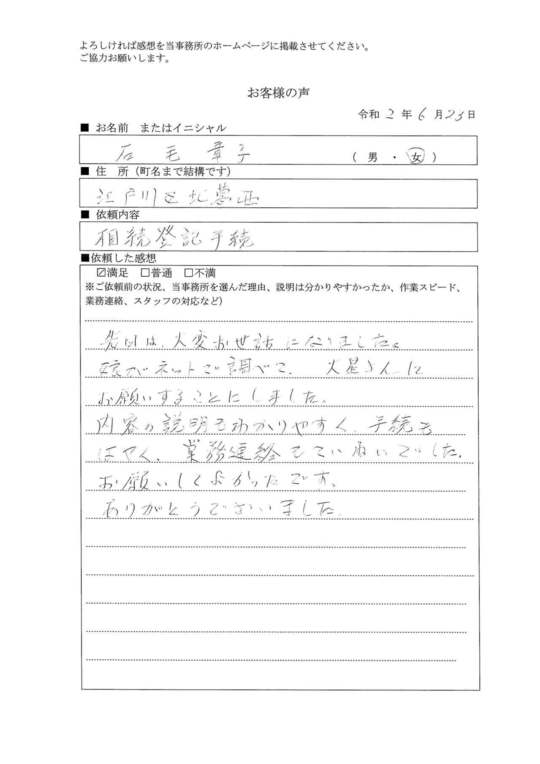 よろしければ感想を当事務所のホームページに掲載させてください。
ご協力お願いします。
お客様の声
令和 2 年 6 月 23 日
■ お名前　またはイニシャル
石毛 章子 （ 男 ・ 女 ）
■ 住　所（町名まで結構です）
江戸川区北葛西
■ 依頼内容
相続登記手続
■依頼した感想
☑満足　☐普通　☐不満
※ご依頼前の状況、当事務所を選んだ理由、説明は分かりやすかったか、作業スピード、
業務連絡、スタッフの対応など）
先日は、大変お世話になりました。
娘がネットで調べて、 大星さんに
お願いすることにしました。
内容の説明もわかりやすく、手続も
はやく、業務連絡もていねいでした。
お願いしてよかったです。
ありがとうございました。